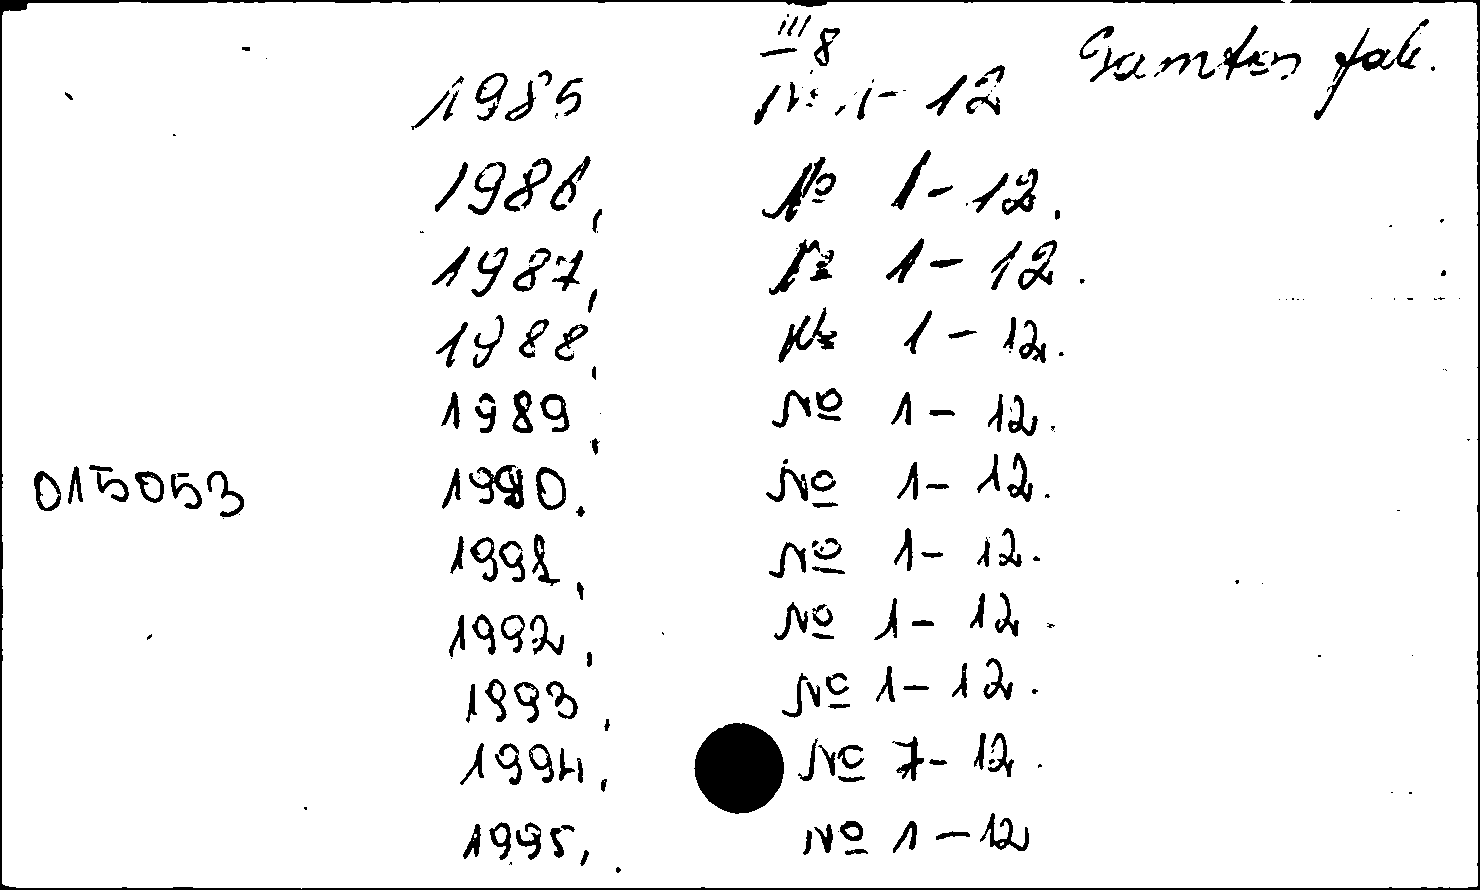 III 8 Gamtos fak.
1985 № 1-12
1986, № 1-12.
1987, № 1-12.
1988, № 1-12.
1989, № 1-12.
015053 1990. № 1-12.
1991, № 1-12.
1992, № 1-12.
1993, № 1-12.
1994, № 7-12.
1995, № 1-12